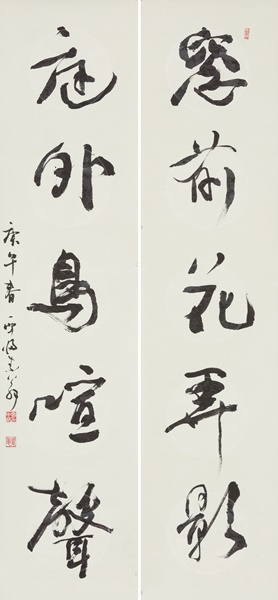 窗前花弄影
庭外鳥喧聲
庚午春